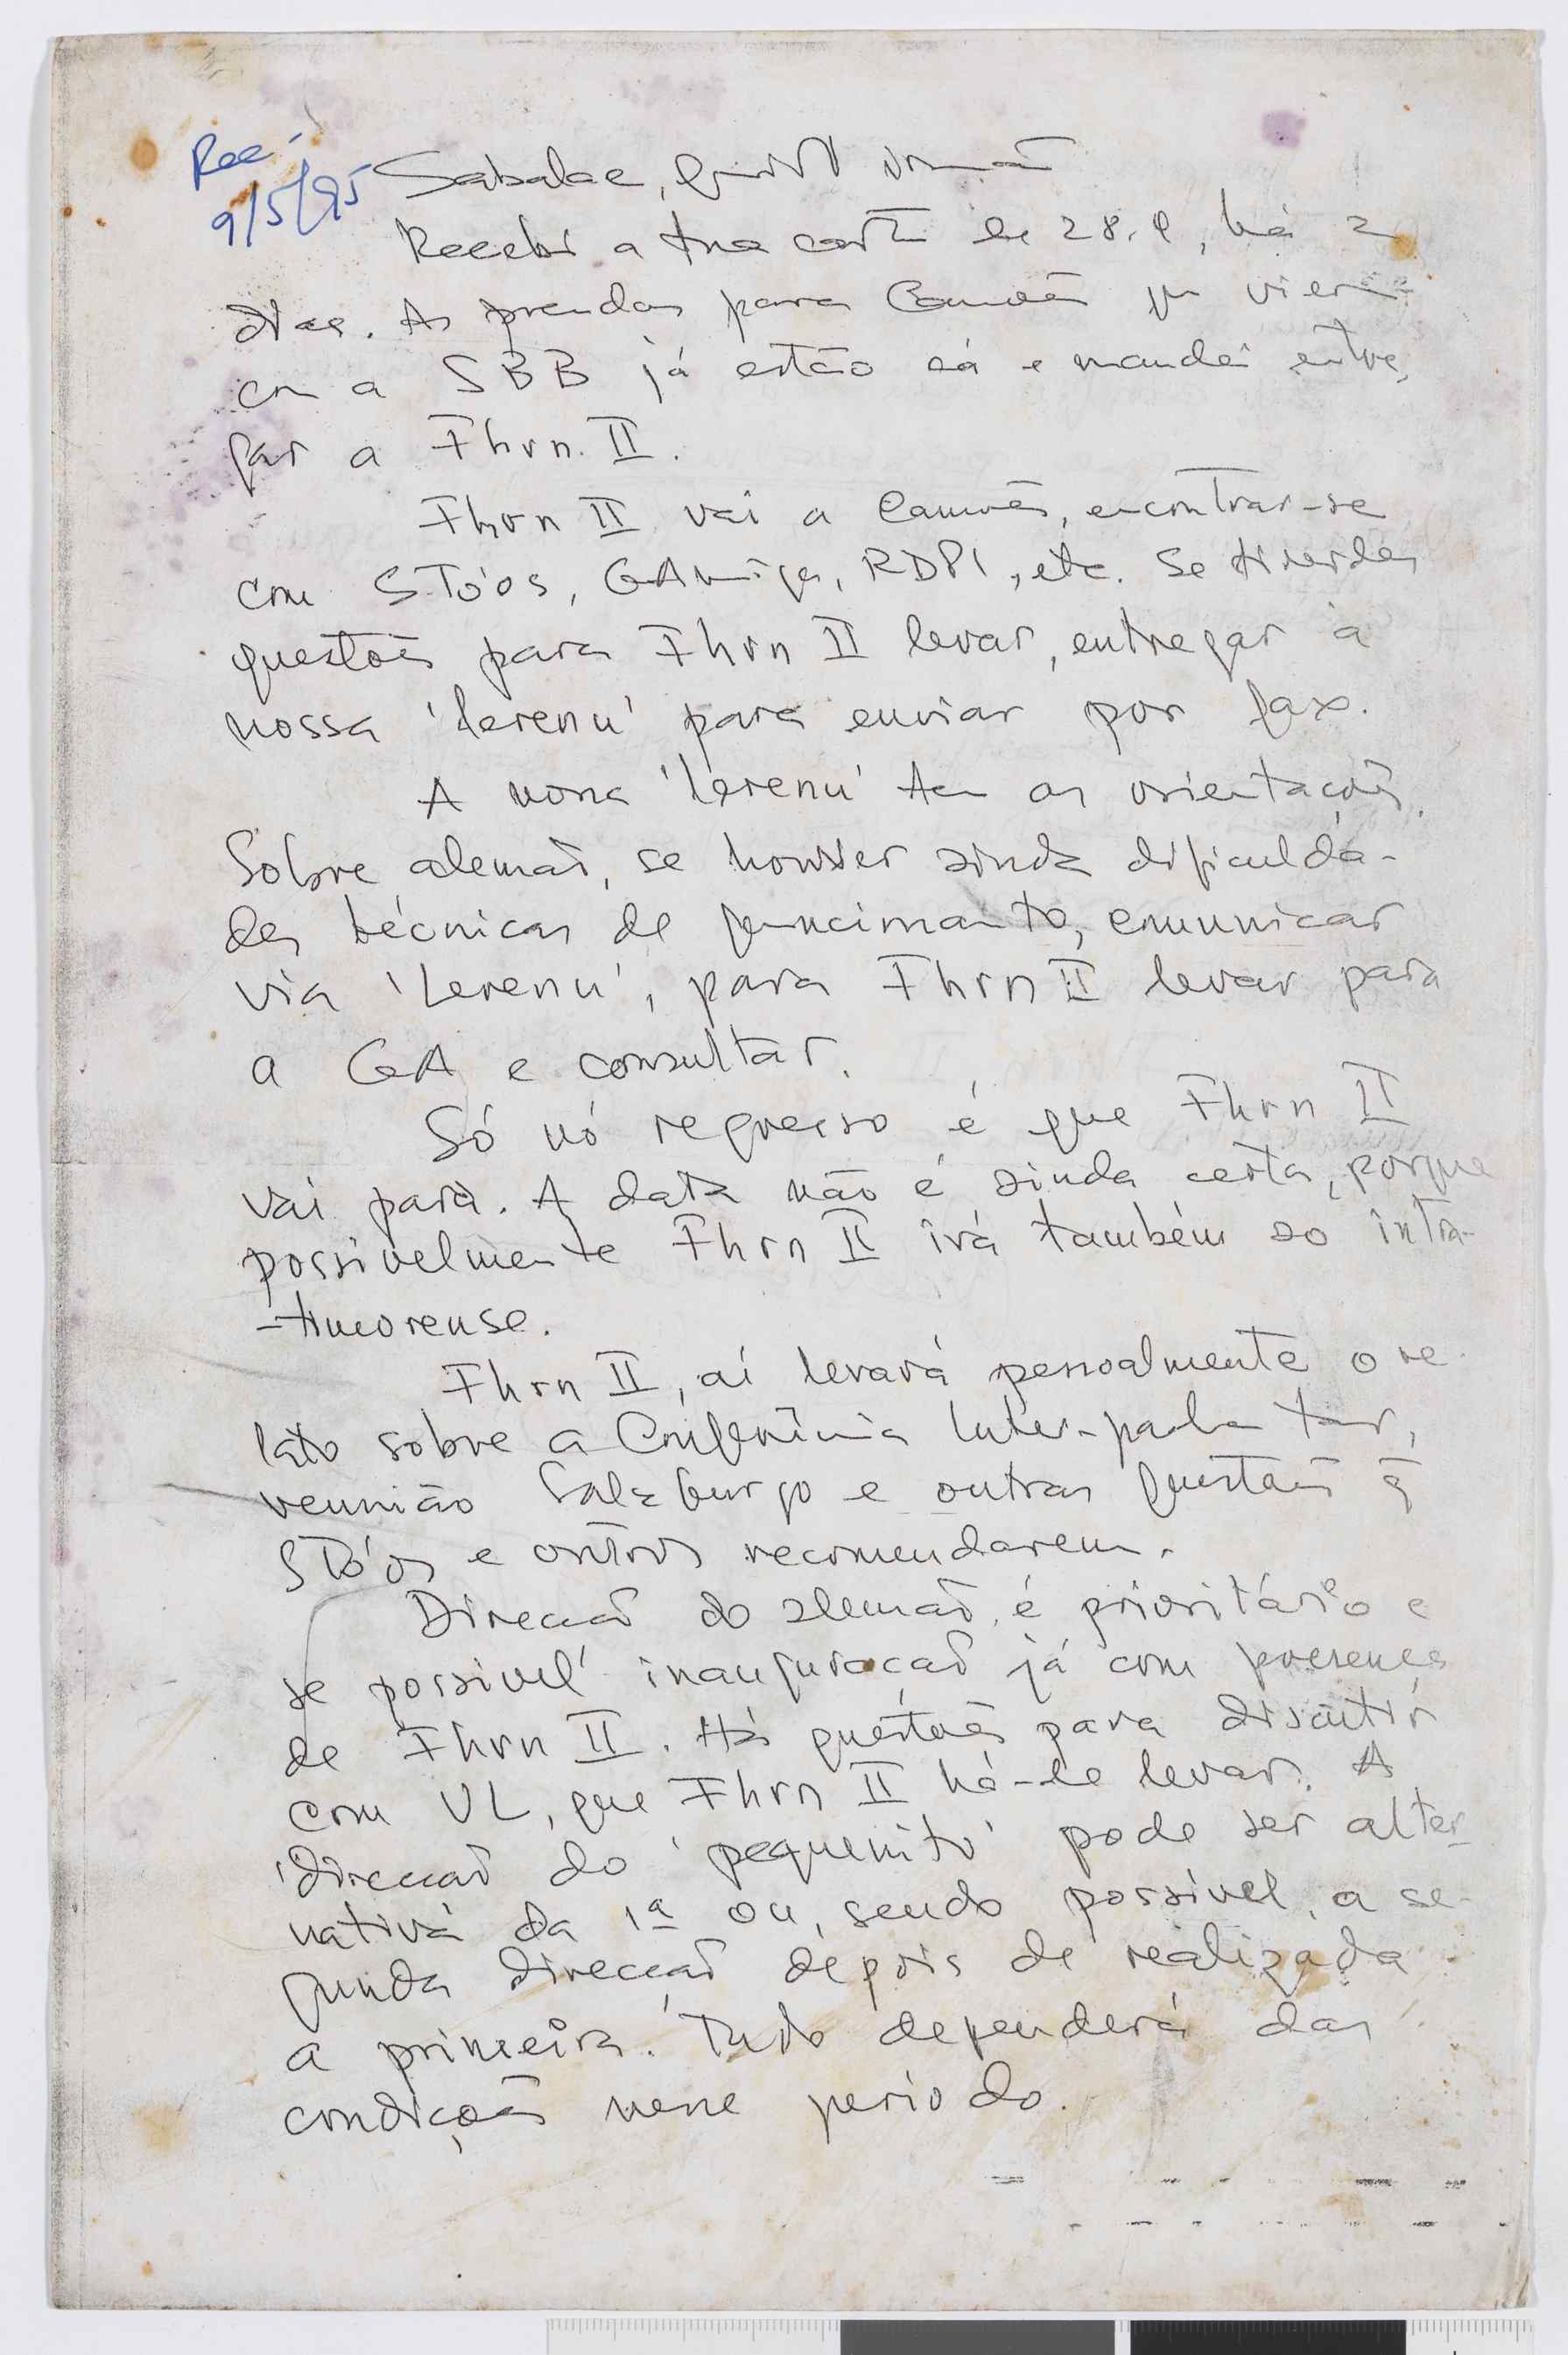 Rec.
9/5/95
Sabalae, querido irmão
Recebi a tua carta de 28.4, há 2
dias. As prendas para Camões q vieram
com a SBB já estão cá e mandei entre-
gar a Fhrn. II.
Fhrn II vai a Camões, encontrar-se
com STó'os, GAmiga, RDP1, etc. Se tiverdes
questões para Fhrn II levar, entregar à
nossa 'lerenu' para enviar por fax.
A nossa 'lerenu' tem as orientações.
Sobre alemão, se houver ainda dificulda-
des técnicas de funcimanto, comunicar
via 'Lerenu', para Fhrn II levar para
a GA e consultar.
Só nó regresso é que Fhrn II
vai para. A data não é ainda certa, porque
possivelmente Fhrn II irá também ao intra-
-timorense.
Fhrn II, aí levará pessoalmente o re-
lato sobre a Conferência Inter-parlamentar,
reunião Salzburgo e outras questões q
STó'os e outros recomendarem.
Direcção do alemão, é prioritário e
se possivel inauguração já com presença
de Fhrn II. Há questões para discutir
com VL, que Fhrn II há-de levar. A
direcção do 'pequenito' pode ser alter-
nativa da 1ª ou, sendo possivel, a se-
gunda direcção depois de realizada
a primeira. Tudo dependerá das
condições nesse periodo.